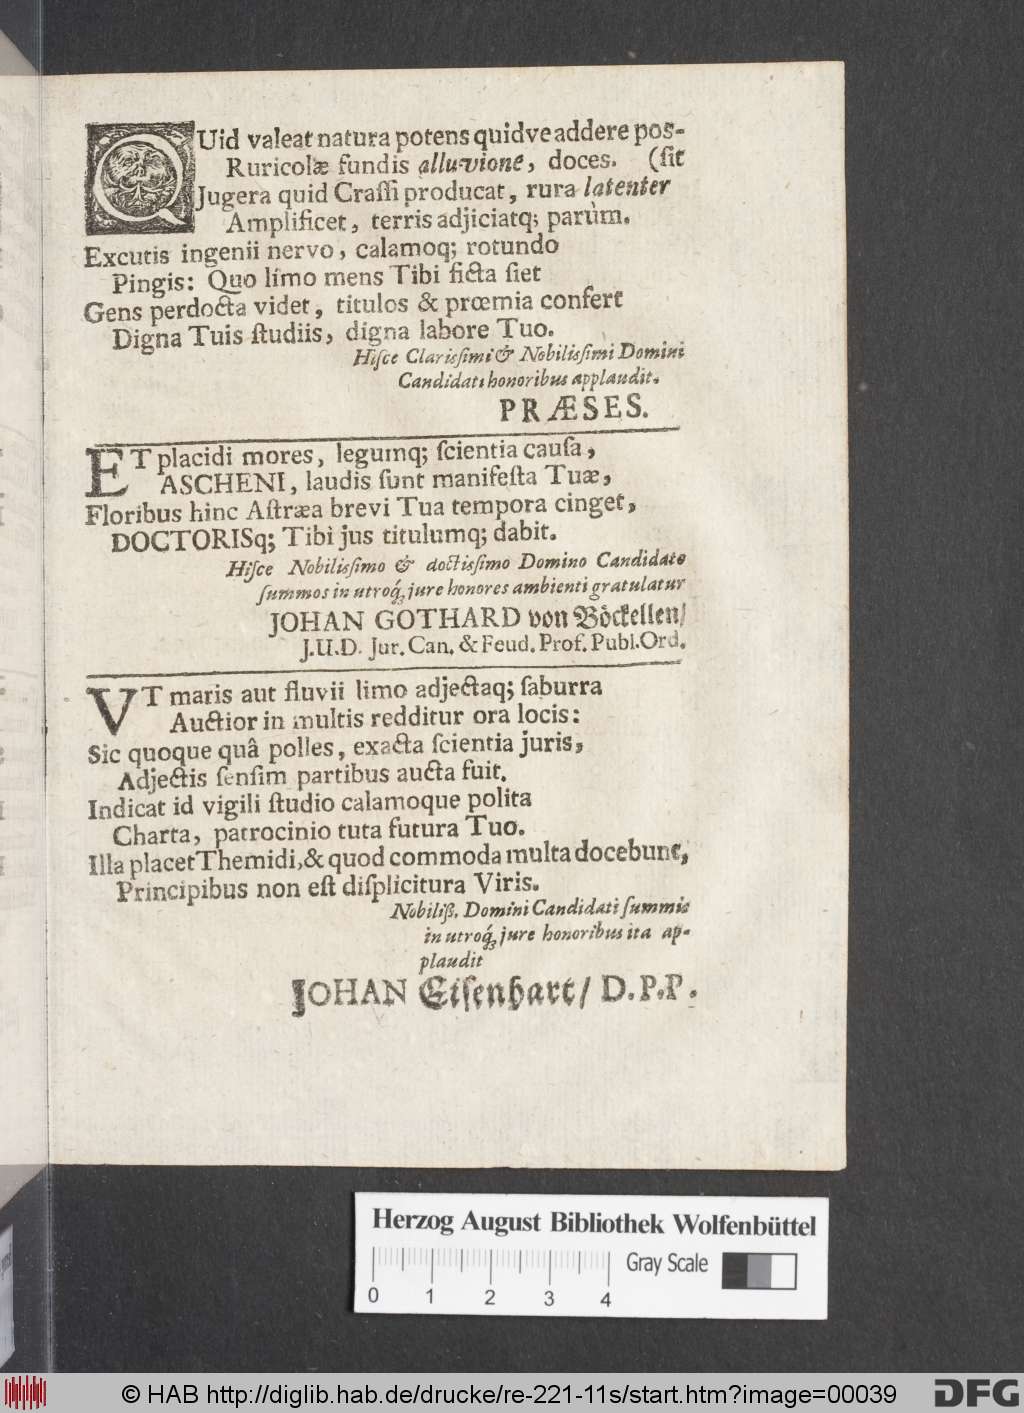 QUid valeat natura potens quidve addere pos-
Ruricolæ fundis alluvione, doces. (ſit
Jugera quid Craſſi producat, rura latenter
Amplificet, terris adjiciatq; parùm.
Excutis ingenii nervo, calamoq; rotundo
Pingis: Quo límo mens Tibi ficta ſiet
Gens perdocta videt, titulos & prœmia confert
Digna Tuis ſtudiis, digna labore Tuo.
Hiſce Clariſſimi & Nobiliſſimi Domini
Candidati honoribus applaudit.
PRÆSES.
ET placidi mores, legumq; ſcientia cauſa,
ASCHENI, laudis ſunt manifeſta Tuæ,
Floribus hinc Aſtræa brevi Tua tempora cinget,
DOCTORISq; Tibi jus titulumq; dabit.
Hiſce Nobiliſſimo & doctiſſimo Domino Candidato
ſummos in utroq́; jure honores ambienti gratulatur
JOHAN GOTHARD von Böckellen/
J.U.D. Jur. Can. & Feud. Prof. Publ. Ord.
VT maris aut fluvii limo adjectaq; ſaburra
Auctior in multis redditur ora locis:
Sic quoque quâ polles, exacta ſcientia juris,
Adjectis ſenſim partibus aucta fuit.
Indicat id vigili ſtudio calamoque polita
Charta, patrocinio tuta futura Tuo.
Illa placet Themidi, & quod commoda multa docebunt,
Principibus non eſt diſplicitura Viris.
Nobiliß. Domini Candidati ſummis
in utroq́; jure honoribus ita ap-
plaudit
JOHAN Eiſenhart/ D.P.P.
Herzog August Bibliothek Wolfenbüttel
Gray Scale
0 1 2 3 4
© HAB http://diglib.hab.de/drucke/re-221-11s/start.htm?image=00039
DFG